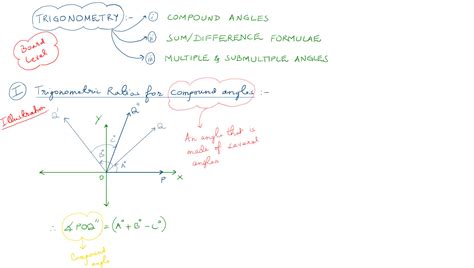 TRIGONOMETRY :- (i) COMPOUND ANGLES
(ii) SUM/DIFFERENCE FORMULAE
(iii) MULTIPLE & SUBMULTIPLE ANGLES
Board Level
I Trigonometric Ratios for compound angles :-
Illustration
Q' Y Q" Q
An angle that is
made of several
angles
C° B° A°
O P X
∴ ∡POQ" = (A° + B° − C°)
Compound
angle